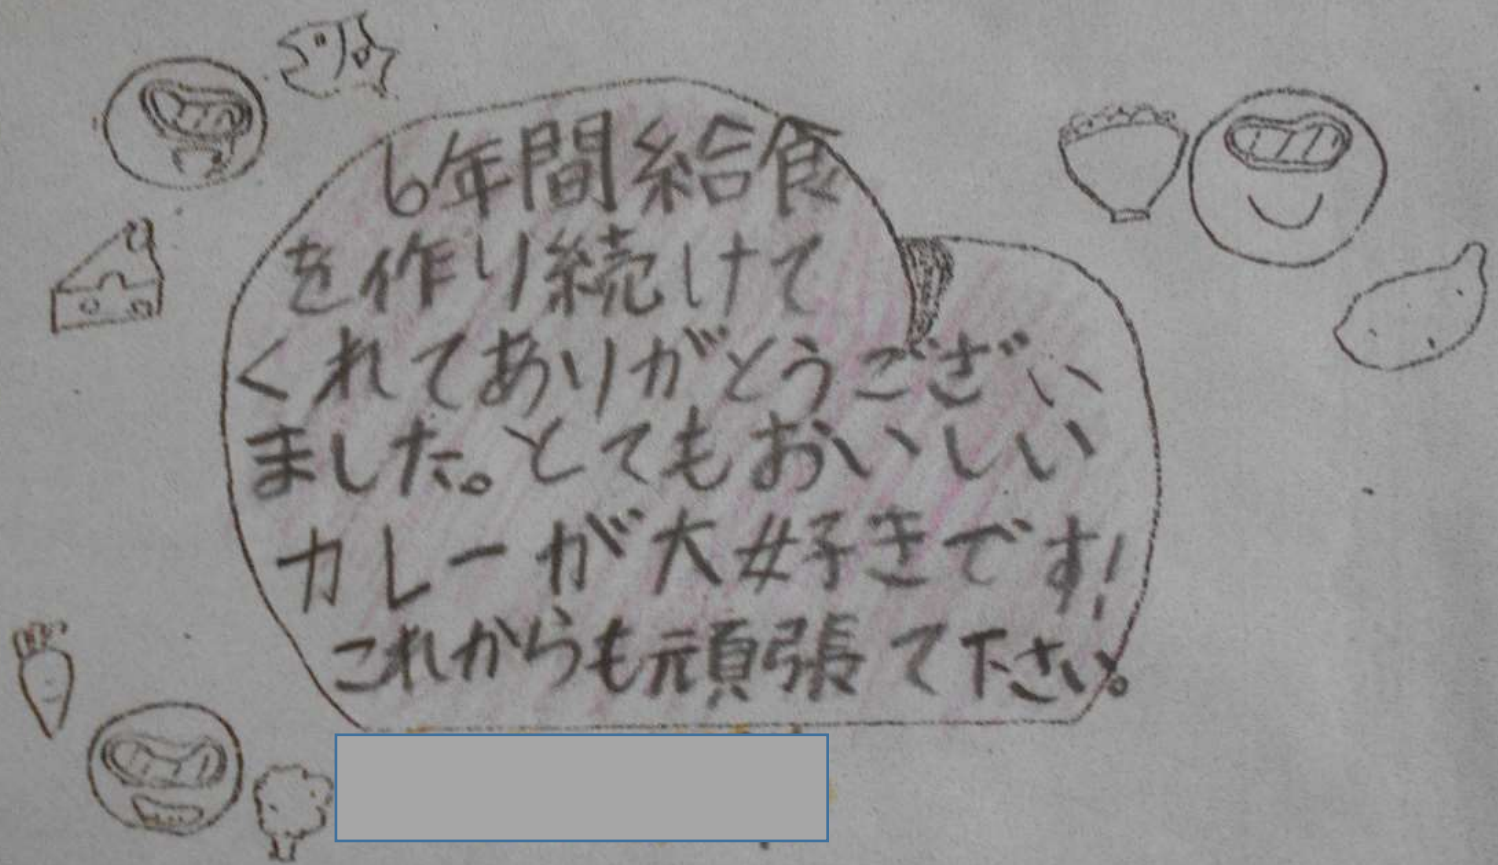 6年間給食
を作り続けて
くれてありがとうござい
ました。とてもおいしい
カレーが大好きです!
これからも頑張て下さい。